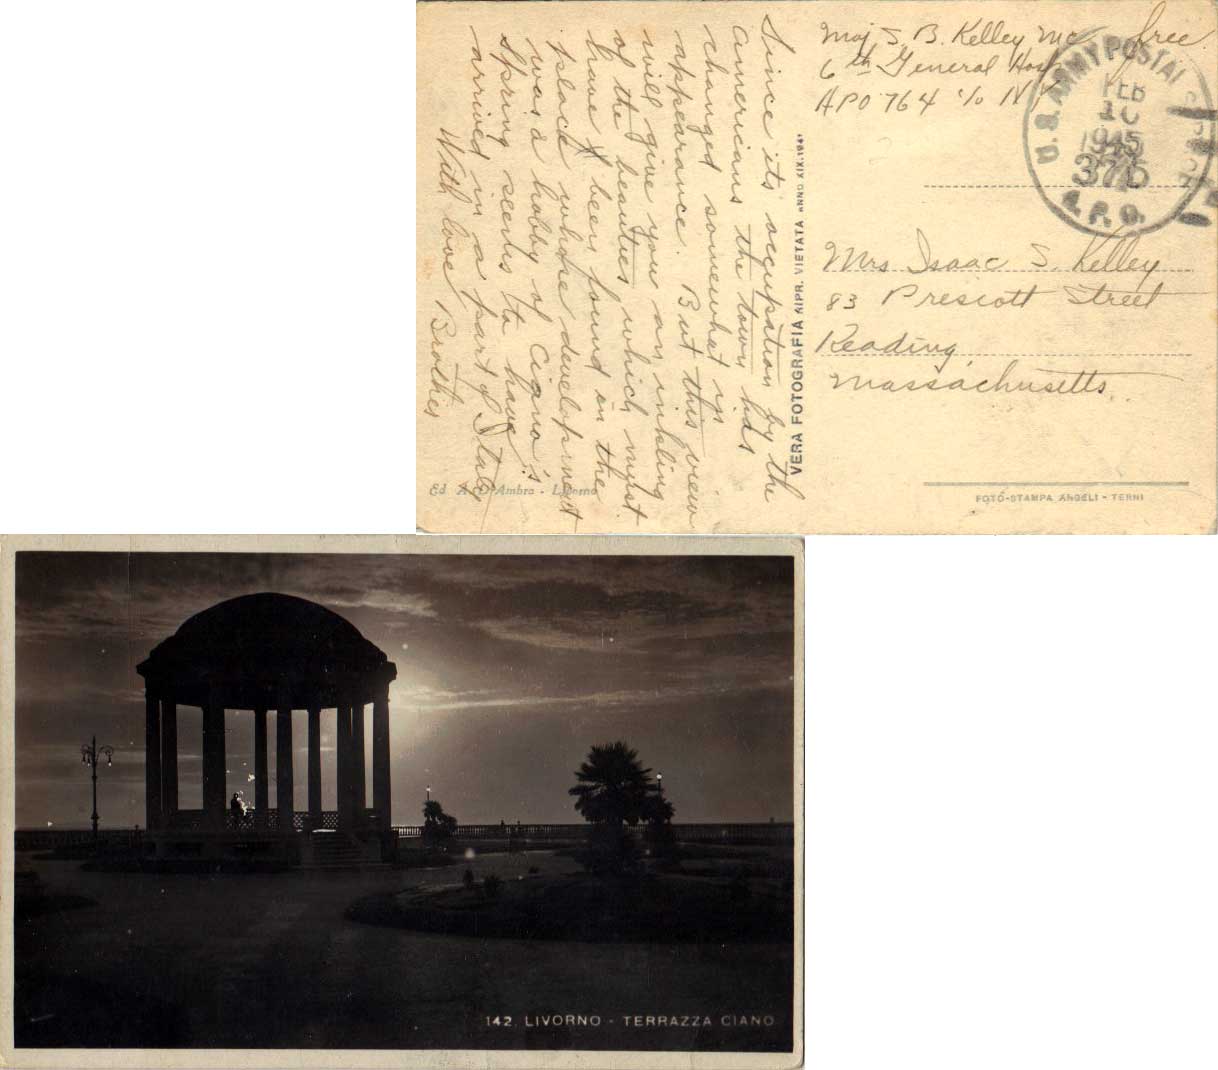 Maj S. B. Kelley MC
free
6th General Hosp
APO 764 c/o NY
U.S. ARMY POSTAL
FEB
1945
A.P.O.
Mrs Isaac S. Kelley
83 Prescott Street
Reading,
Massachusetts.
VERA FOTOGRAFIA RIPR. VIETATA ANNO XIX.1941
FOTO-STAMPA ANGELI - TERNI
Since its occupation by the
Americans the town has
changed somewhat in
appearance. But this view
will give you an inkling
of the beauties which must
have been found in the
place whose development
was a hobby of Ciano's
Spring seems to have
arrived in a part of Italy
With love Brother
Ed. A. D'Ambra - Livorno
142. LIVORNO - TERRAZZA CIANO